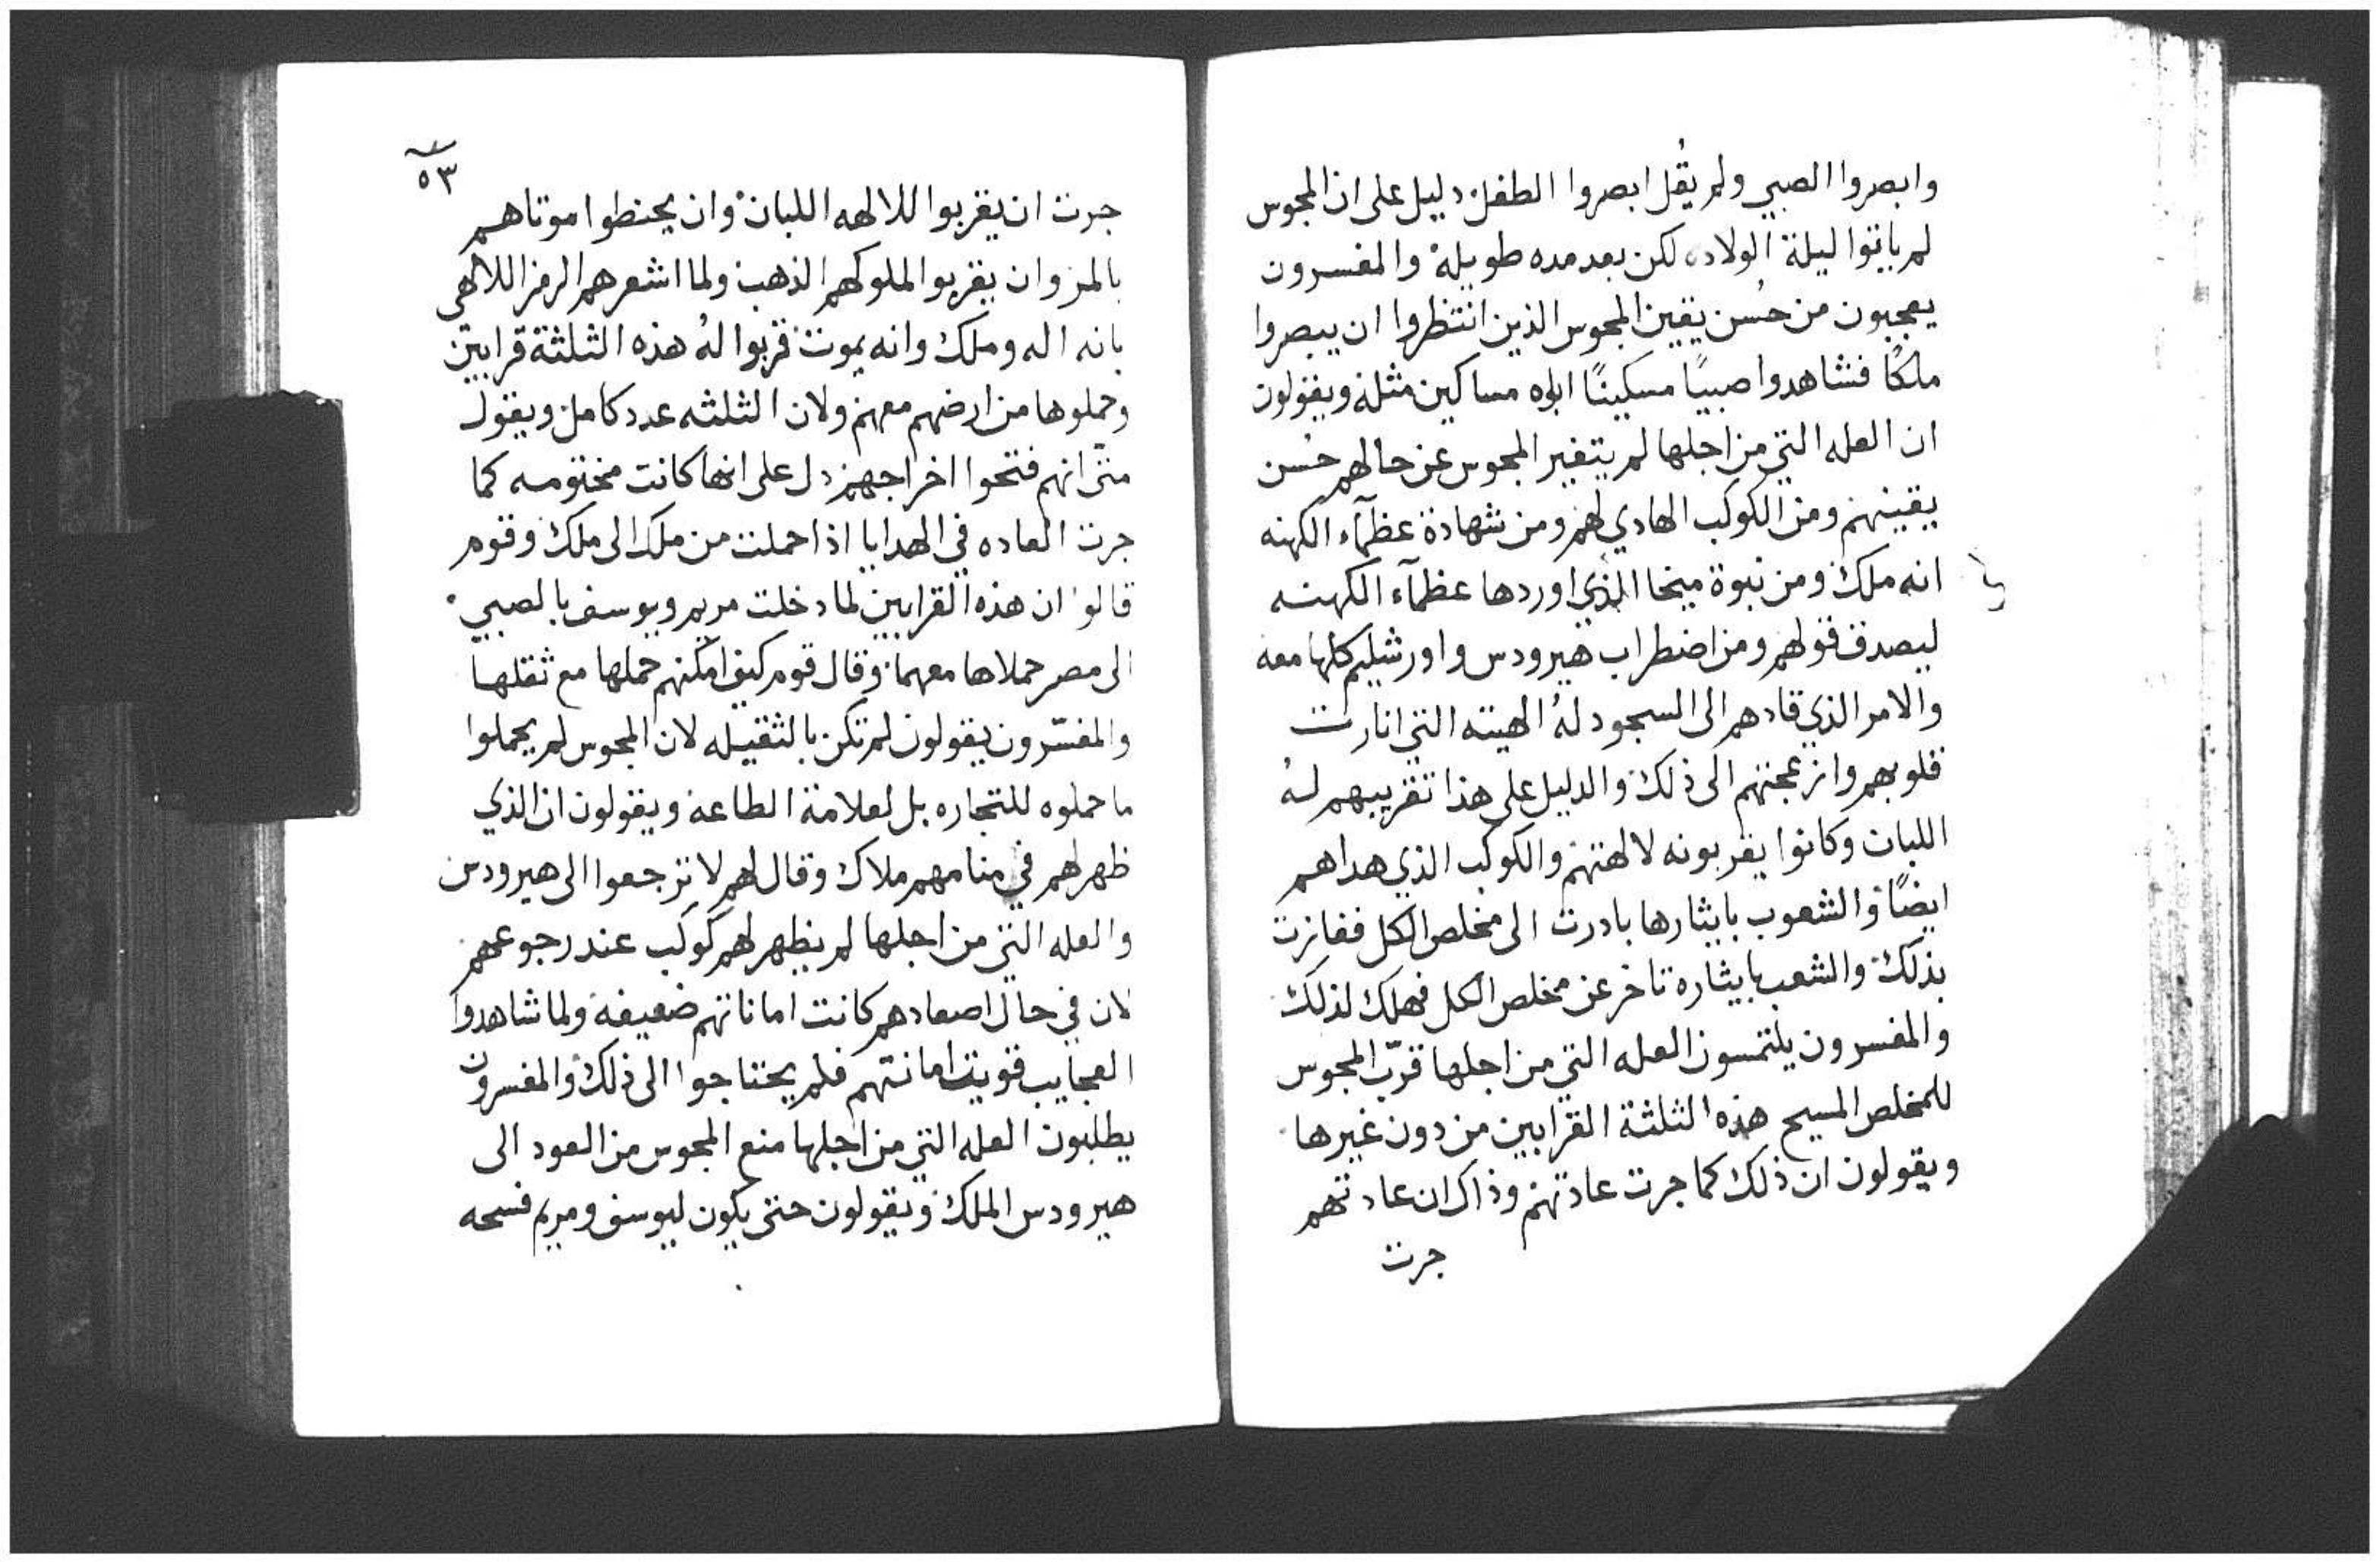 وابصروا الصبي ولم يقُل ابصروا الطفل دليل على ان المجوس
لم ياتوا ليلة الولاده لكن بعد مده طويلة والمفسرون
يعجبون من حُسن يقين المجوس الذين انتظروا ان يبصروا
ملكًا فشاهدوا صبيًا مسكينًا ابواه مساكين مثله ويقولون
ان العله التي من اجلها لم يتغير المجوس عن حالهم حُسن
يقينهم ومن الكوكب الهادي لهم ومن شهادة عظمآء الكهنه
انه ملك ومن نبوة ميخا الذي اوردها عظمآء الكهنه
ليصدق قولهم ومن اضطراب هيرودس واورشليم كلها معه
والامر الذي قادهم الى السجود لهُ الهيته التي انارت
قلوبهم وازعجتهم الى ذلك والدليل على هذا تقريبهم لهُ
اللبان وكانوا يقربونه لالهتهم والكوكب الذي هداهم
ايضًا والشعوب بايثارها بادرت الى مخلص الكل ففازت
بذلك والشعب بايثاره تاخر عن مخلص الكل فهلك لذلك
والمفسرون يلتمسون العله التي من اجلها قرّب المجوس
للمخلص المسيح هذه الثلثة القرابين من دون غيرها
ويقولون ان ذلك كما جرت عادتهم وذاك ان عادتهم
جرت
٥٣
جرت ان يقربوا للالهه اللبان وان يحنطوا موتاهم
بالمر وان يقربوا لملوكهم الذهب ولما اشعرهم الرمز اللالاهي
بانه اله وملك وانه يموت قربوا لهُ هذه الثلثة قرابين
وحملوها من ارضهم معهم ولان الثلثه عدد كامل ويقول
متّى انهم فتحوا اخراجهم دل على انها كانت مختومه كما
جرت العاده في الهدايا اذا حملت من ملك الى ملك وقوم
قالوا ان هذه القرابين لما دخلت مريم ويوسف بالصبي
الى مصر حملاها معهما وقال قوم كيف امكنهم حملها مع ثقلها
والمفسّرون يقولون لم تكن بالثقيله لان المجوس لم يحملوا
ما حملوه للتجاره بل لعلامة الطاعة ويقولون ان الذي
ظهر لهم في منامهم ملاك وقال لهم لا ترجعوا الى هيرودس
والعله التي من اجلها لم يظهر لهم كوكب عند رجوعهم
لان في حال اصعادهم كانت اماناتهم ضعيفه ولما شاهدوا
العجايب قويت امانتهم فلم يحتاجوا الى ذلك والمفسرون
يطلبون العله التي من اجلها منع المجوس من العود الى
هيرودس الملك ويقولون حتى يكون ليوسف ومريم فسحه